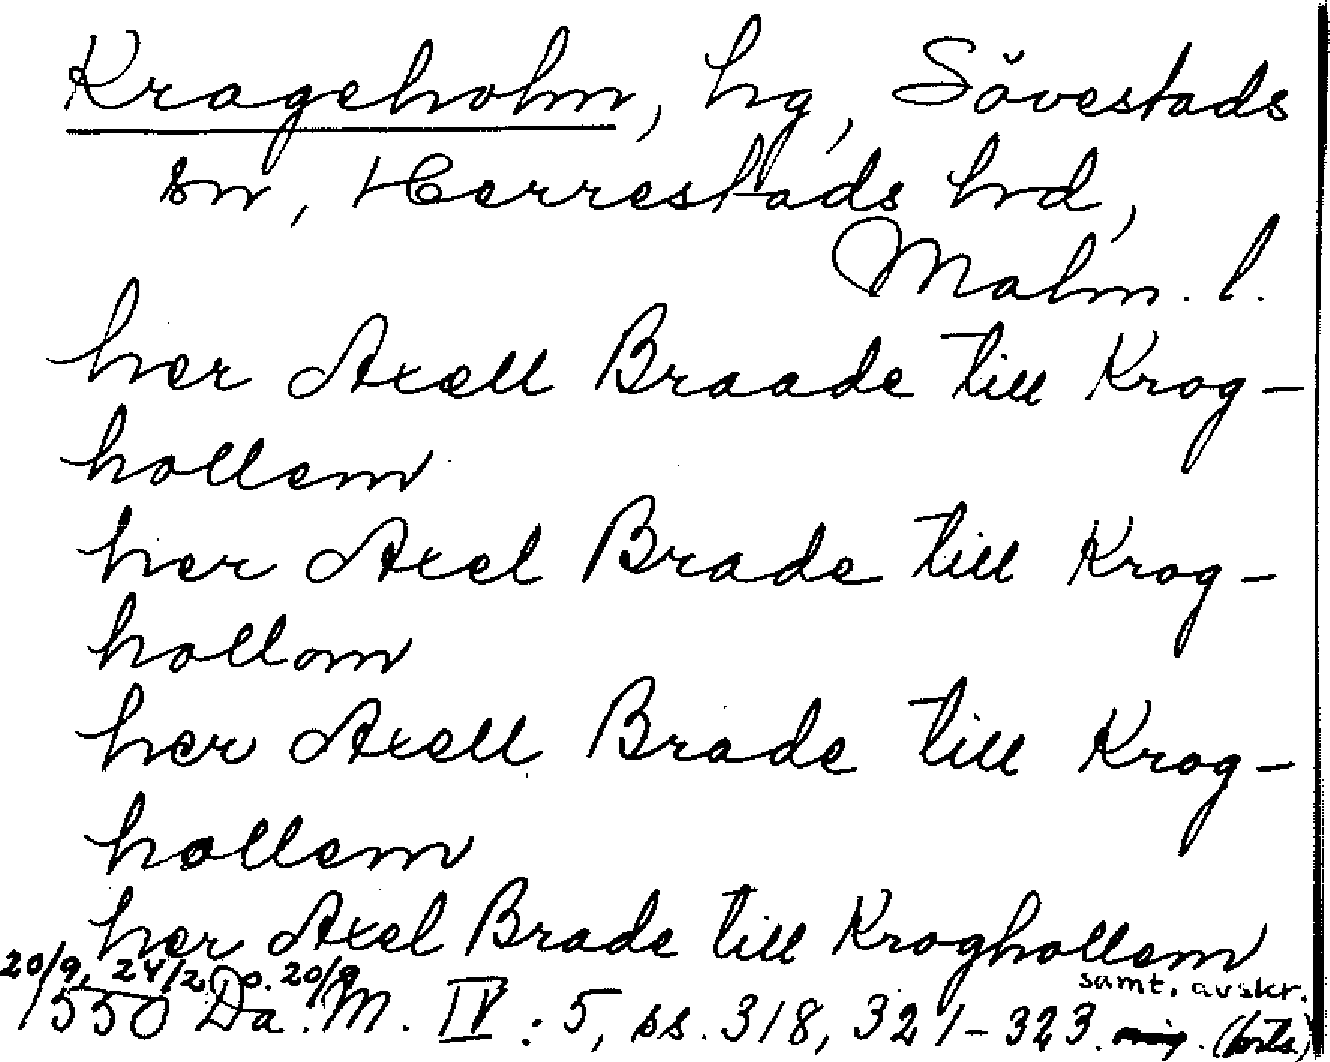 Krageholm, hg, Sövestads
sn, Herrestads hd,
Malm. l.
her Axell Braade till Krog-
hollem
her Axel Brade till Krog-
hollom
her Axell Brade till Krog-
hollem
her Axel Brade till Kroghollem
20/9, 24/2 o. 20/9 samt. avskr.
1550 Da. M. IV : 5, ss. 318, 321-323. (forts.)